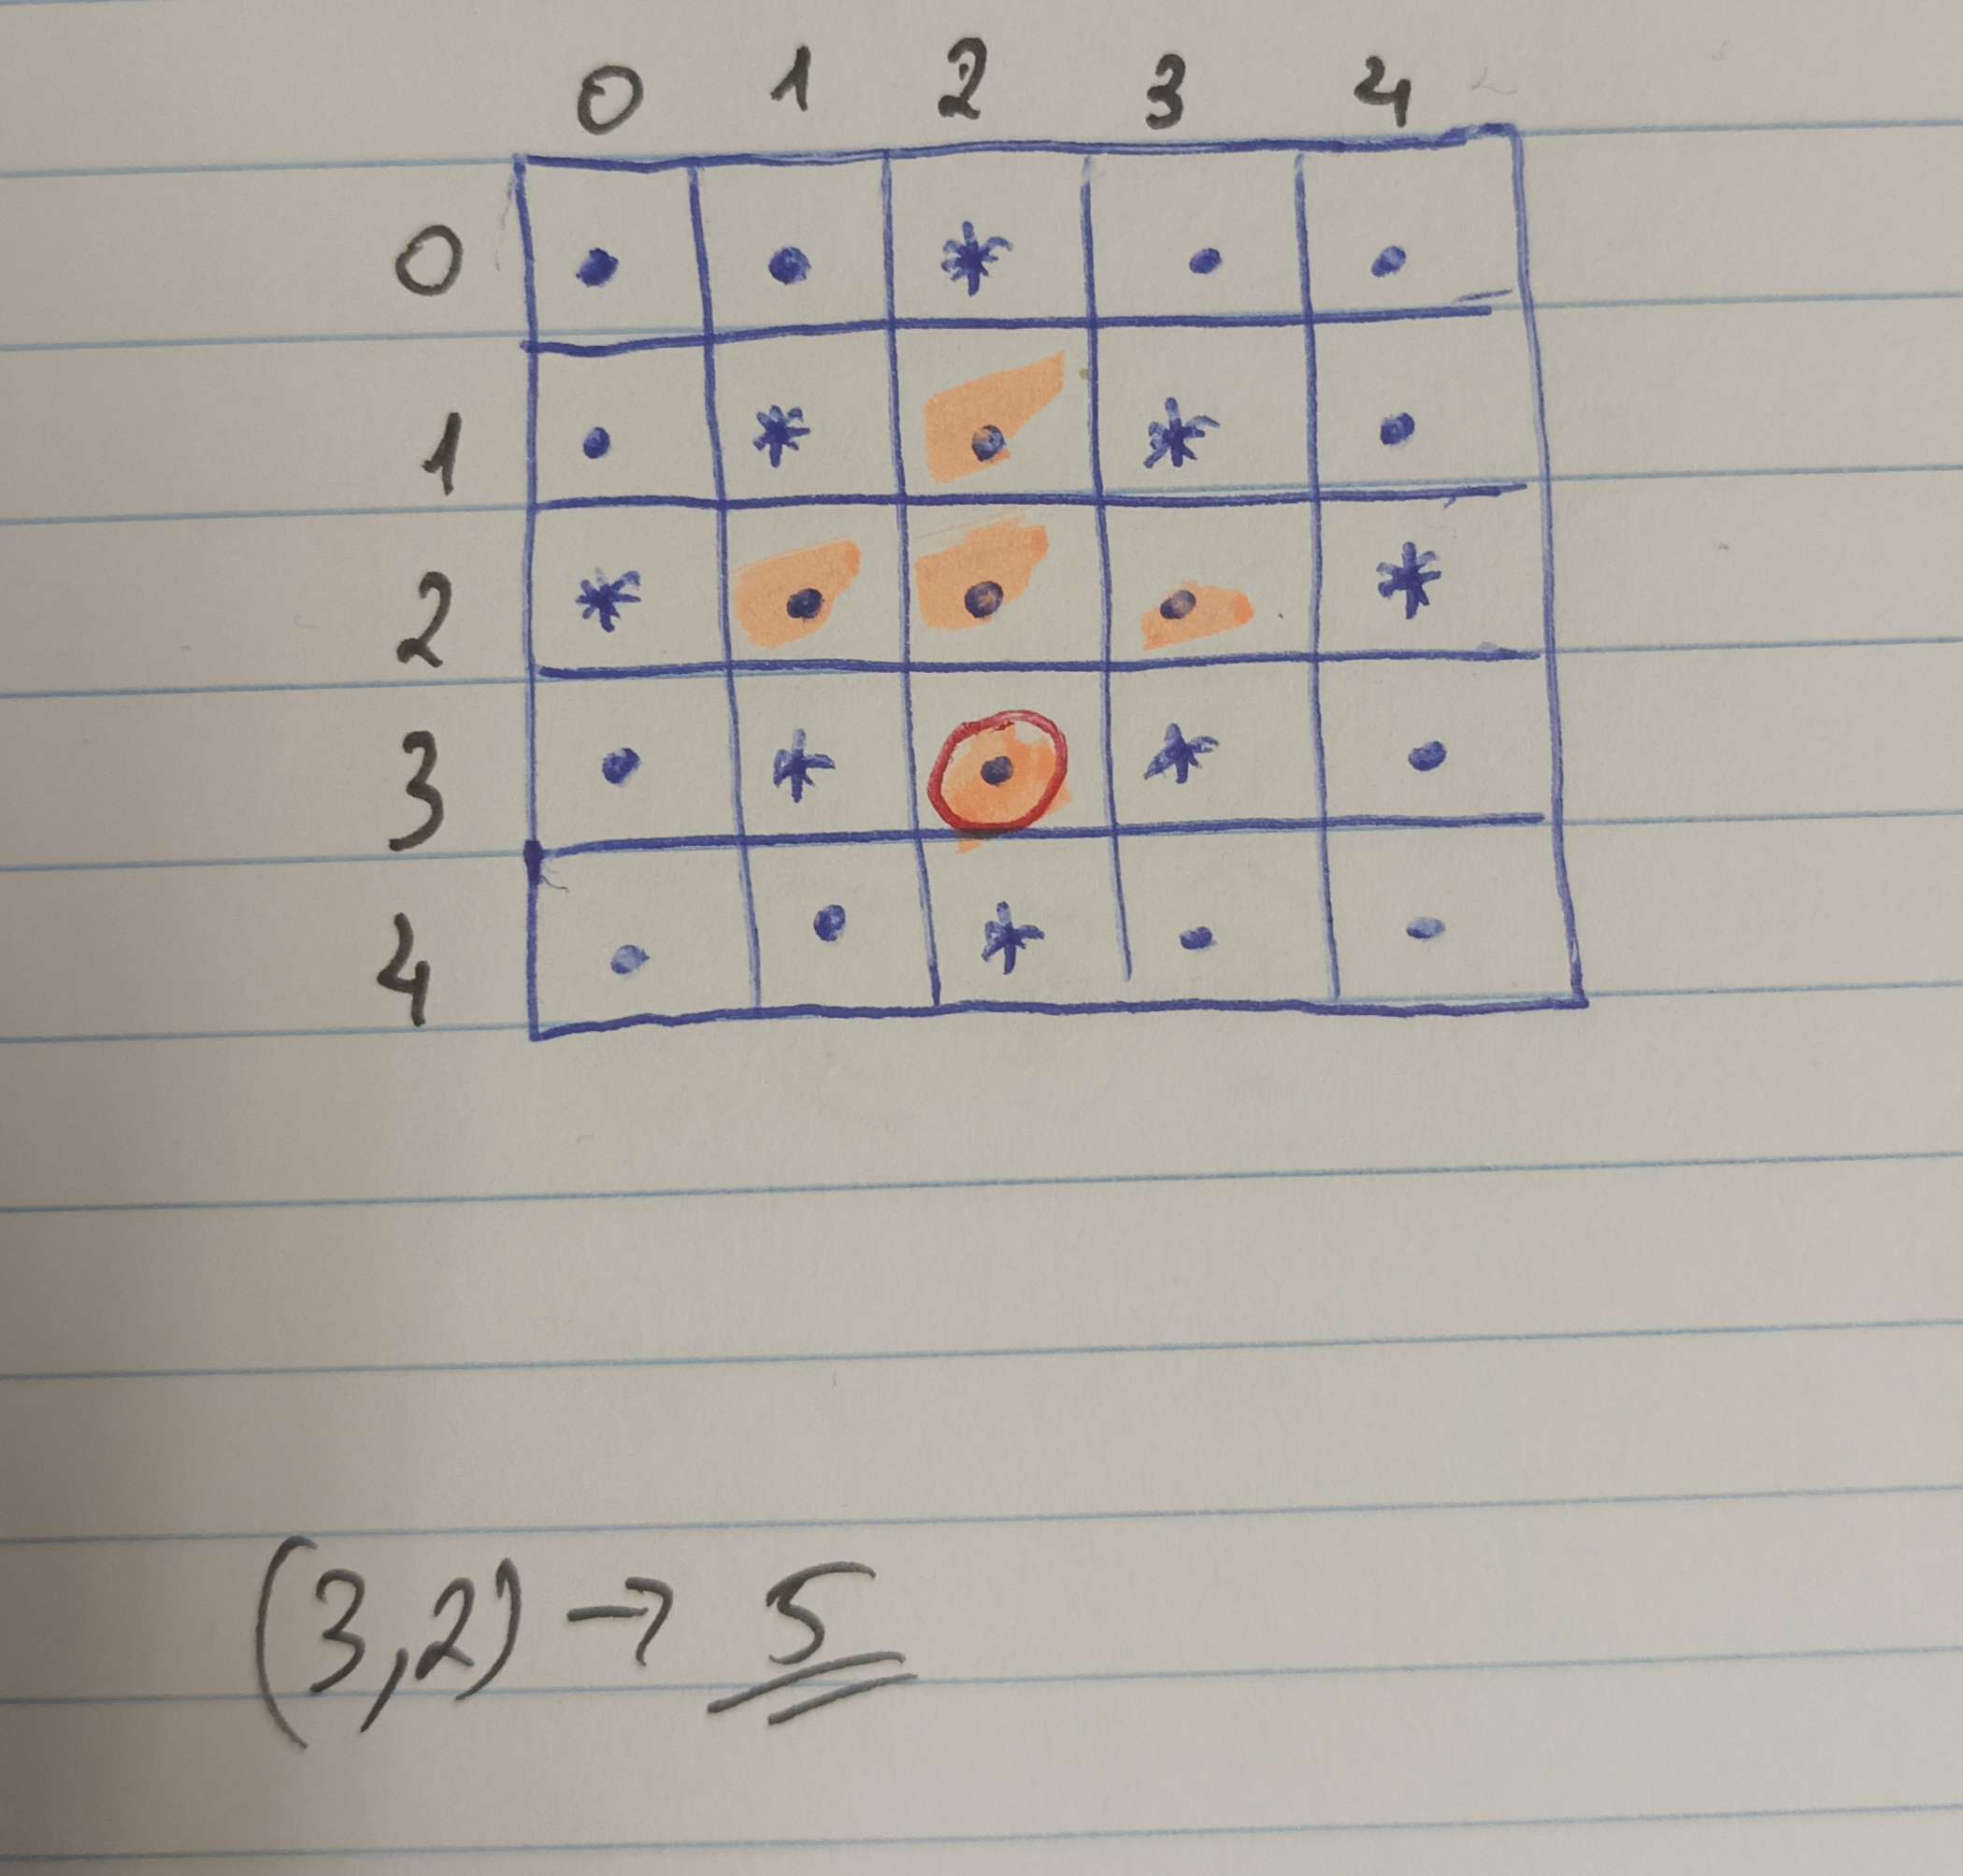 0 1 2 3 4
0 • • * • •
1 • * • * •
2 * • • • *
3 • * • * •
4 • • * • •
(3,2) → 5